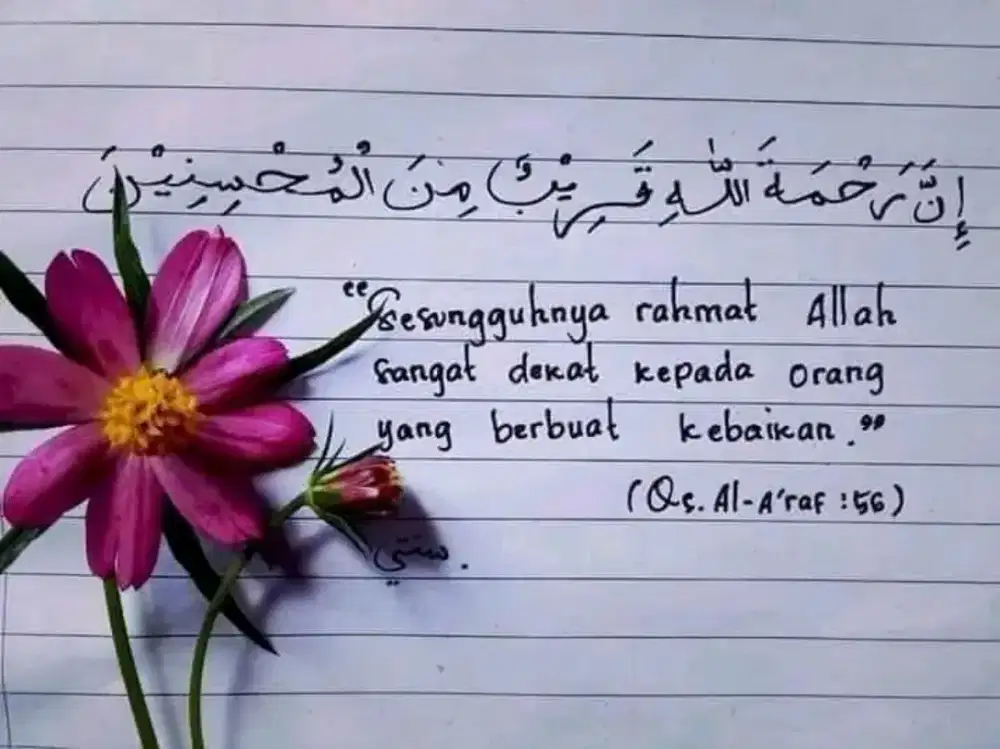 إِنَّ رَحْمَةَ اللّٰهِ قَرِيْبٌ مِنَ الْمُحْسِنِيْنَ
“Sesungguhnya rahmat Allah
sangat dekat kepada orang
yang berbuat kebaikan.”
(Qs. Al-A'raf : 56)